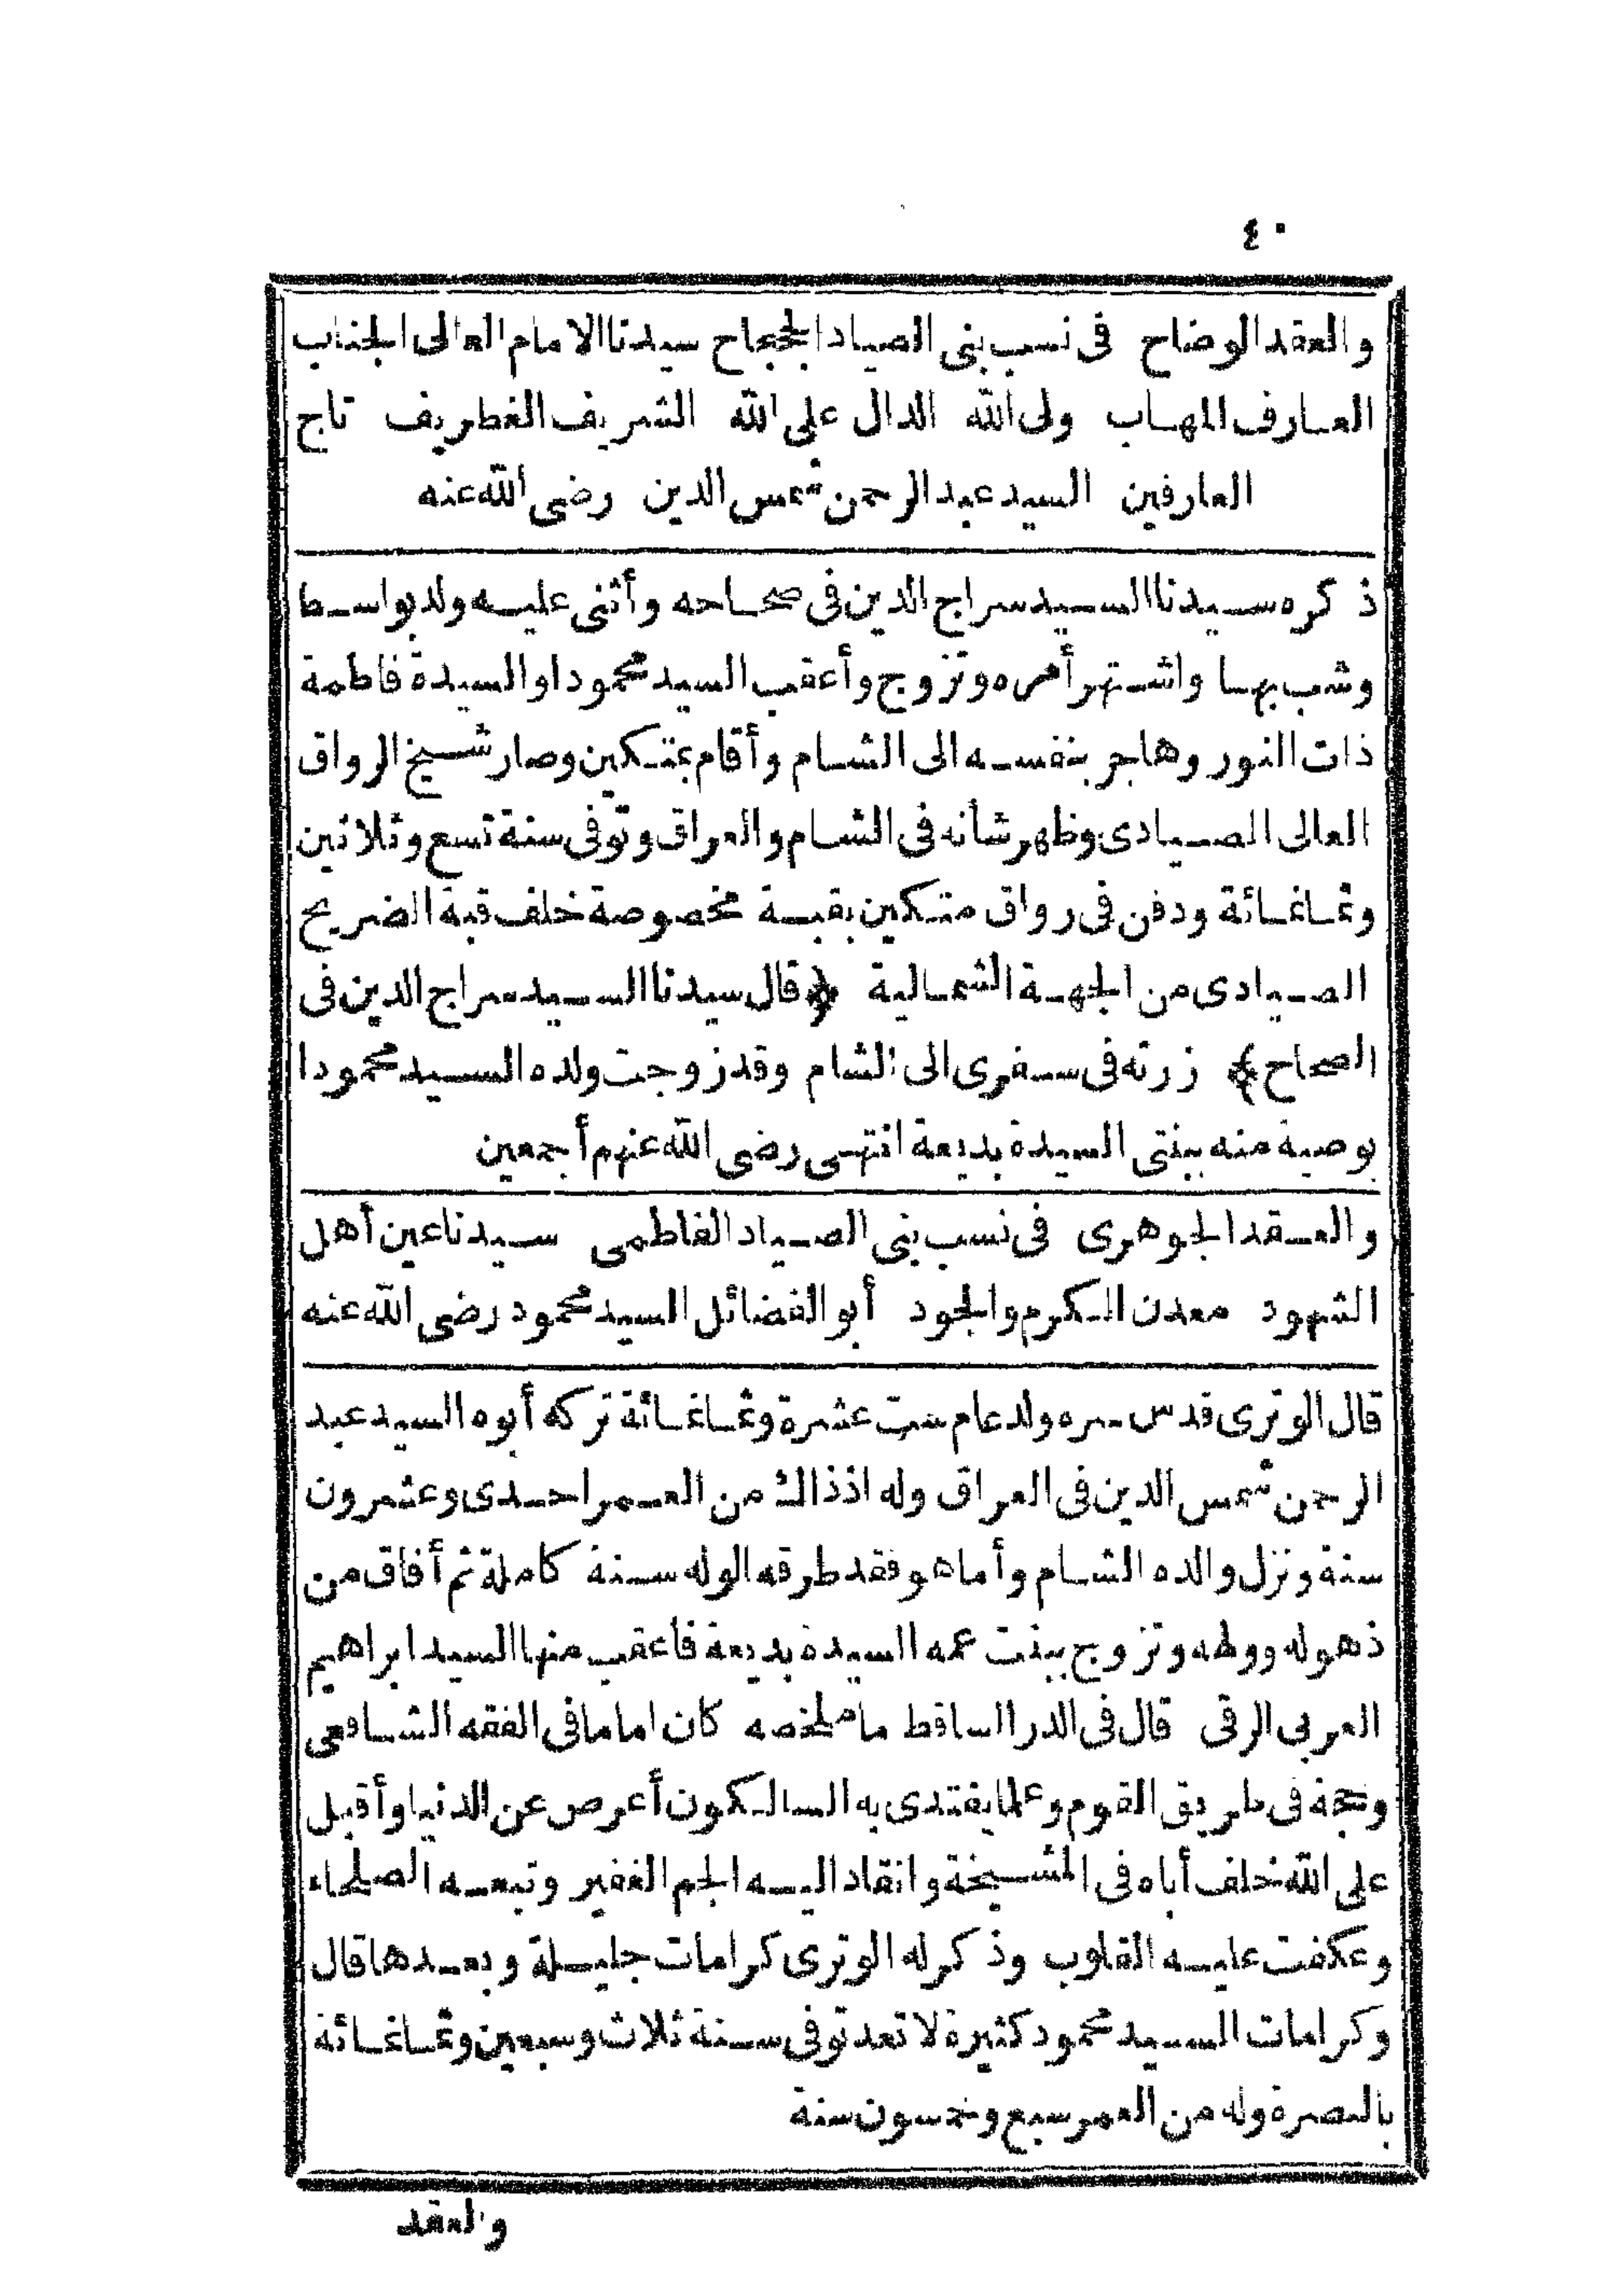 ٤٠
والعقد الوضاح في نسب بنى الصياد الجحجاح سيدنا الامام العالى الجناب
العارف المهاب ولى الله الدال على الله الشريف الغطريف تاج
العارفين السيد عبد الرحمن شمس الدين رضى الله عنه
ذكره سيدنا السيد سراج الدين فى صحاحه وأثنى عليه ولد بواسط
وشب بها واشتهر أمره وتزوج وأعقب السيد محمودا والسيدة فاطمة
ذات النور وهاجر بنفسه الى الشام وأقام بمتكين وصار شيخ الرواق
العالى الصيادى وظهر شأنه فى الشام والعراق وتوفى سنة تسع وثلاثين
وثمانمائة ودفن فى رواق متكين بقبة مخصوصة خلف قبة الضريح
الصيادى من الجهة الشمالية ﴿قال سيدنا السيد سراج الدين فى
الصحاح﴾ زرته فى سفرى الى الشام وقد زوجت ولده السيد محمودا
بوصية منه ببنتى السيدة بديعة انتهى رضى الله عنهم أجمعين
والعقد الجوهرى فى نسب بنى الصياد الفاطمى سيدنا عين أهل
الشهود معدن الكرم والجود أبو الفضائل السيد محمود رضى الله عنه
قال الوترى قدس سره ولد عام ست عشرة وثمانمائة تركه أبوه السيد عبد
الرحمن شمس الدين فى العراق وله اذ ذاك من العمر احدى وعشرون
سنة ونزل والده الشام وأما هو فقد طرقه الوله سنة كاملة ثم أفاق من
ذهوله وولهه وتزوج ببنت عمه السيدة بديعة فاعقب منها السيد ابراهيم
العربى الرقى قال فى الدر الساقط ما ملخصه كان اماما فى الفقه الشافعى
وحجة فى طريق القوم وعلما يقتدى به السالكون أعرض عن الدنيا وأقبل
على الله خلف أباه فى المشيخة وانقاد اليه الجم الغفير وتبعه الصلحاء
وعكفت عليه القلوب وذكر له الوترى كرامات جليلة وبعدها قال
وكرامات السيد محمود كثيرة لا تعد توفى سنة ثلاث وسبعين وثمانمائة
بالبصرة وله من العمر سبع وخمسون سنة
والعقد